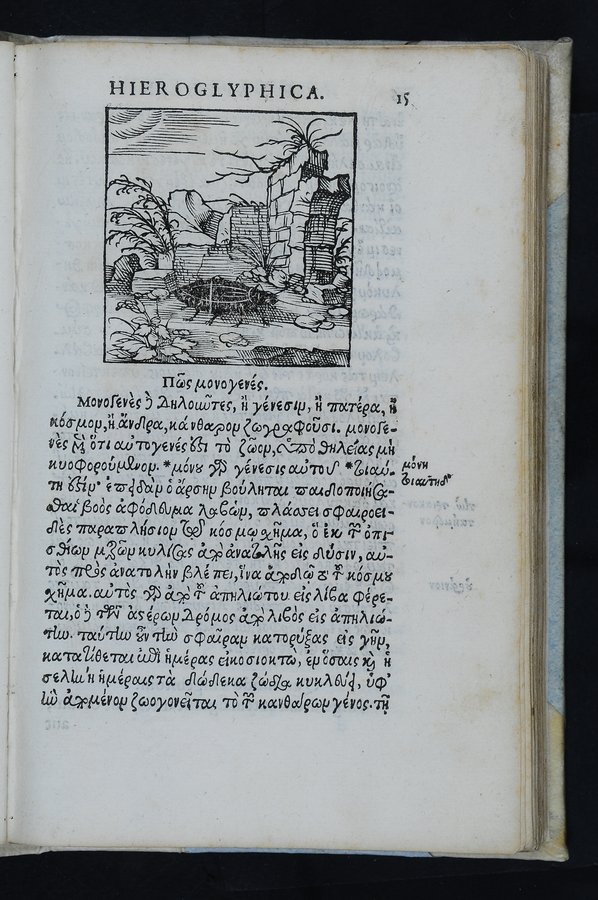 HIEROGLYPHICA.
15
Πῶς μονογενές.
Μονογενὲς δὲ δηλοῦντες, ἢ γένεσιν, ἢ πατέρα, ἢ
κόσμον, ἢ ἄνδρα, κάνθαρον ζωγραφοῦσι. μονογε-
νὲς μὲν ὅτι αὐτογενές ἐστι τὸ ζῶον, ὑπὸ θηλείας μὴ
κυοφορούμενον. *μόνου γὰρ γένεσις αὐτοῦ *τιαύ-
τη ἐστίν· ἐπειδὰν ὁ ἄρσην βούληται παιδοποιήσα-
σθαι βοὸς ἀφόδευμα λαβὼν, πλάσσει σφαιροει-
δὲς παραπλήσιον τῷ κόσμῳ χῆμα, ὃ ἐκ τῶν ὀπι-
σθίων μερῶν κυλίσας ἀπὸ ἀνατολῆς εἰς δύσιν, αὐ-
τὸς πρὸς ἀνατολὴν βλέπει, ἵνα ἀποδῷ τὸ τοῦ κόσμου
χῆμα. αὐτὸς γὰρ ἀπὸ τοῦ ἀπηλιώτου εἰς λίβα φέρε-
ται, ὁ δὲ τῶν ἀστέρων δρόμος ἀπὸ λιβὸς εἰς ἀπηλιώ-
την. ταύτην οὖν τὴν σφαῖραν κατορύξας εἰς γῆν,
κατατίθεται ἐπὶ ἡμέρας εἰκοσιοκτὼ, ἐν ὅσαις καὶ ἡ
σελήνη ἡμέραις τὰ δώδεκα ζώδια κυκλεύει, ὑφ'
ἣν ἀπομένον ζωογονεῖται τὸ τῶν κανθάρων γένος. τῇ
μόνη
τιαύτη δ'